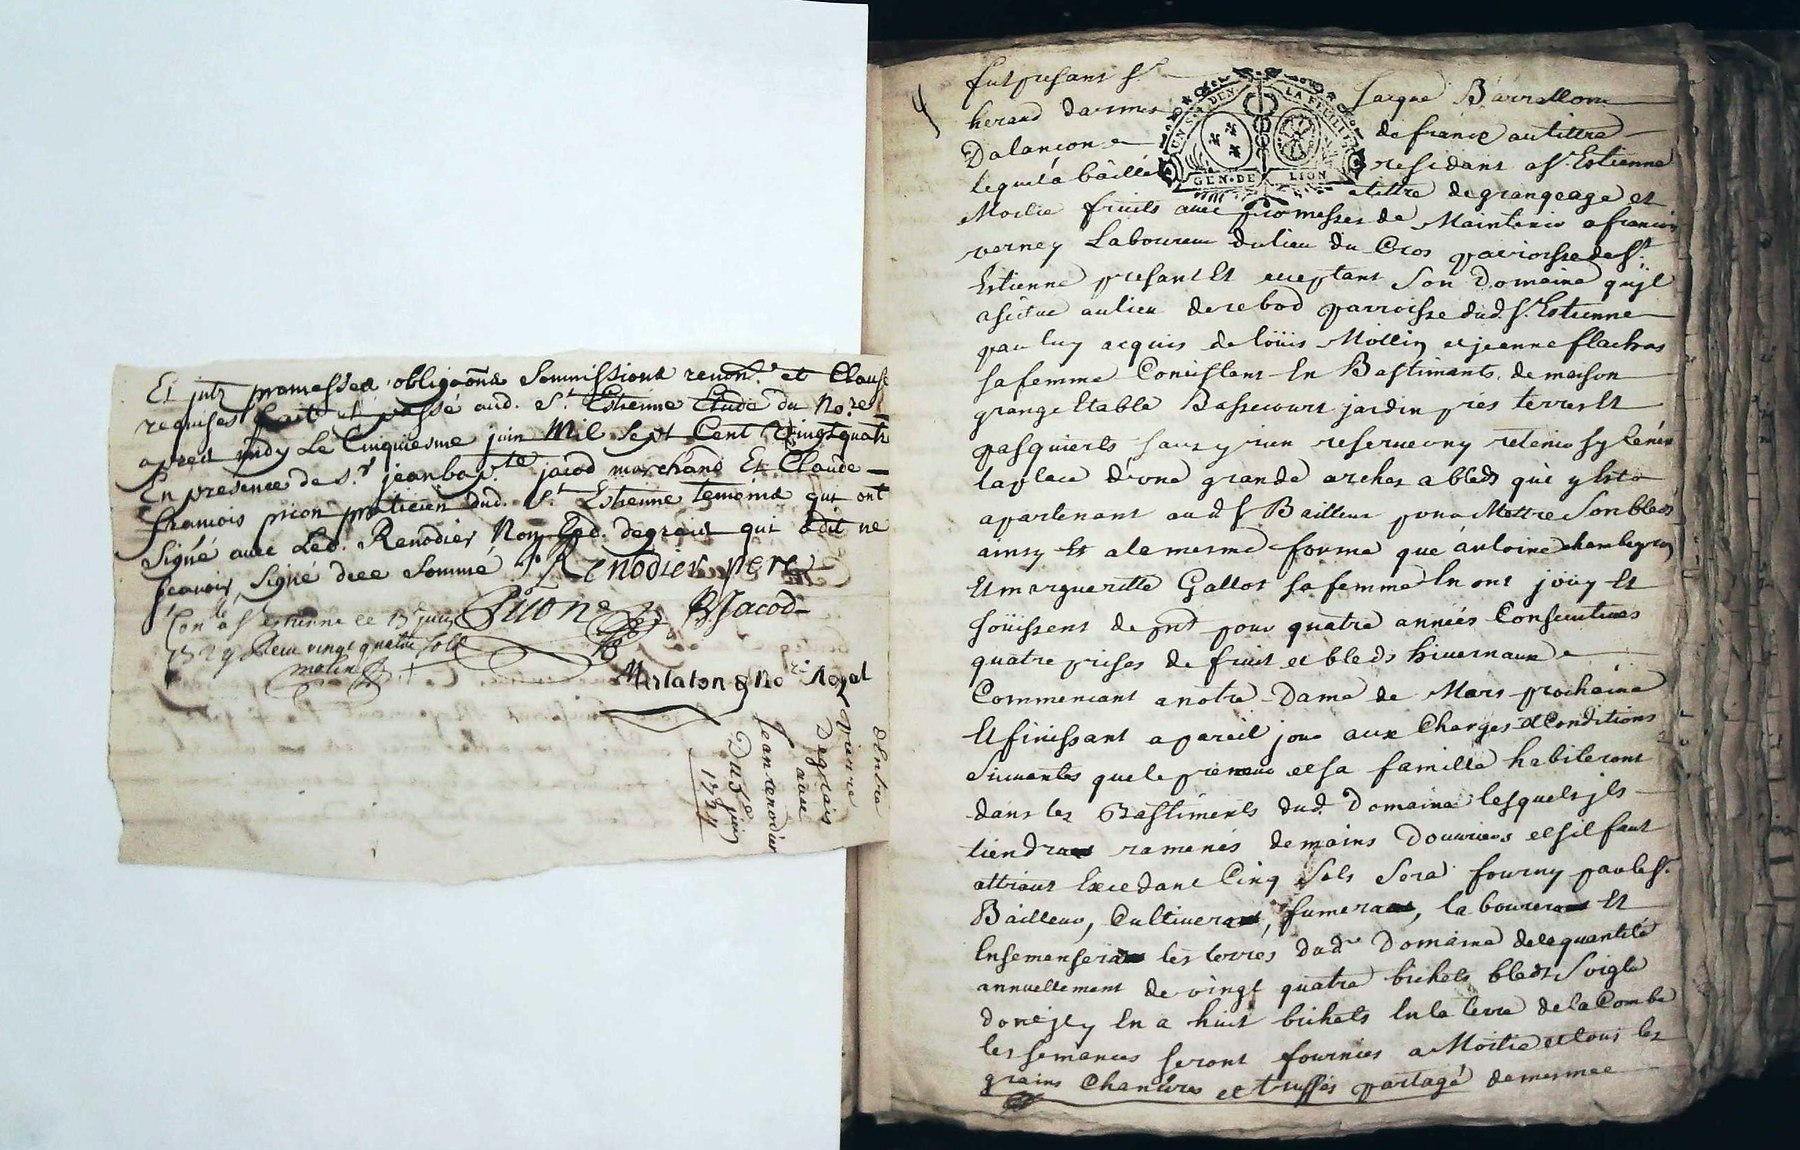 Et jtz promesses obligaôns Soumissions renonons et Clause
requises fait et passé aud. St Estienne Etude du Nore
apres midy Le Cinquiesme juin Mil Sept Cent Vingtquatre
En presence de sr jeanbapte jacod marchand Et Claude
francois picon praticien dud. St Estienne temoins qui ont
signé avec Led. Renodier Non Led. degrais qui a dit ne
scavoir signé dece sommé
Renodier pere
Picon
B Jacod
Con a St estienne ce 15 juin
1724
vingt quatre sols
molin
No Royal
dentre
pierre
Degrais
avec
Jean renodier
Du 5 juin
1724
fut presant Sr Jaque Barrallon
heraud darmes de france au tittre
Dalançon residant a St Estienne
lequel a bâillé a tittre de grangeage et
Moitie fruits avec promesses de Maintenir a francois
verney Laboureur du lieu du Cros parroisse de St
Estienne presant Et acceptant Son Domaine qujl
a situé au lieu de rebod parroisse dud. St Estienne
par luy acquis de loüis Mollin et jeanne flachas
sa femme Consistant En Bastimants de maison
grange Etable Bassecourt jardin prés terres Et
pasquiers sans y rien reserver ny retenir sy le nest
la place d'une grande arches a bleds qui y est
apartenant aud Sr Bailleur pour Mettre Son bleds
ainsy Et a la mesme forme que antoine
Et margueritte Gallot sa femme En ont joüy Et
joüissent de pnt pour quatre années Consecutives
quatre prises de fruit et bleds hivernaux
Commencant a notre Dame de Mars prochaine
Et finissant a pareil jour aux Charges et Conditions
Suivantes que le preneur et sa famille habiteront
dans les Bastiments dud. Domaine lesquels jls
tiendra ramenés de mains Douvriers et sil faut
attraix Excedant Cinq Sols Sera fourny par le Sr
Bailleur, Cultivera, fumera, labourera Et
Ensemensera les terres dud. Domaine de la quantité
annuellement de vingt quatre bichets bleds Soigle
dont jl y En a huit bichets En la terre de la Combe
les semances seront fournies a Moitie et tous les
grains Chanvres et truffes partagé de mesme
GEN DE LION